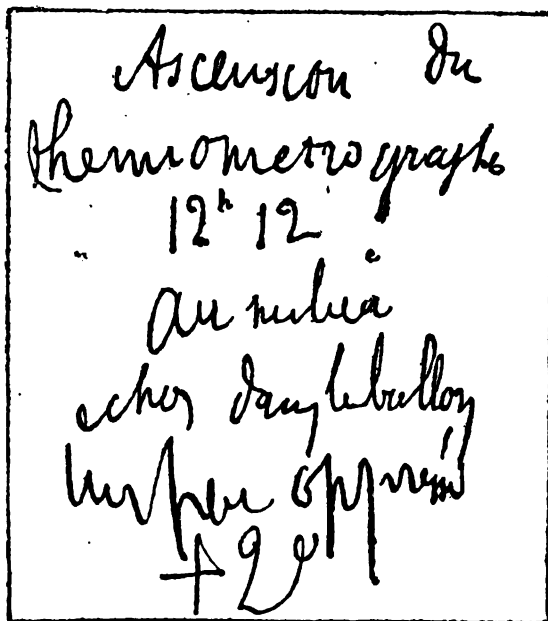 Ascension du
thermometrographe
12ʰ 12
au milieu
echos dans le ballon
un peu oppressé
+ 2°